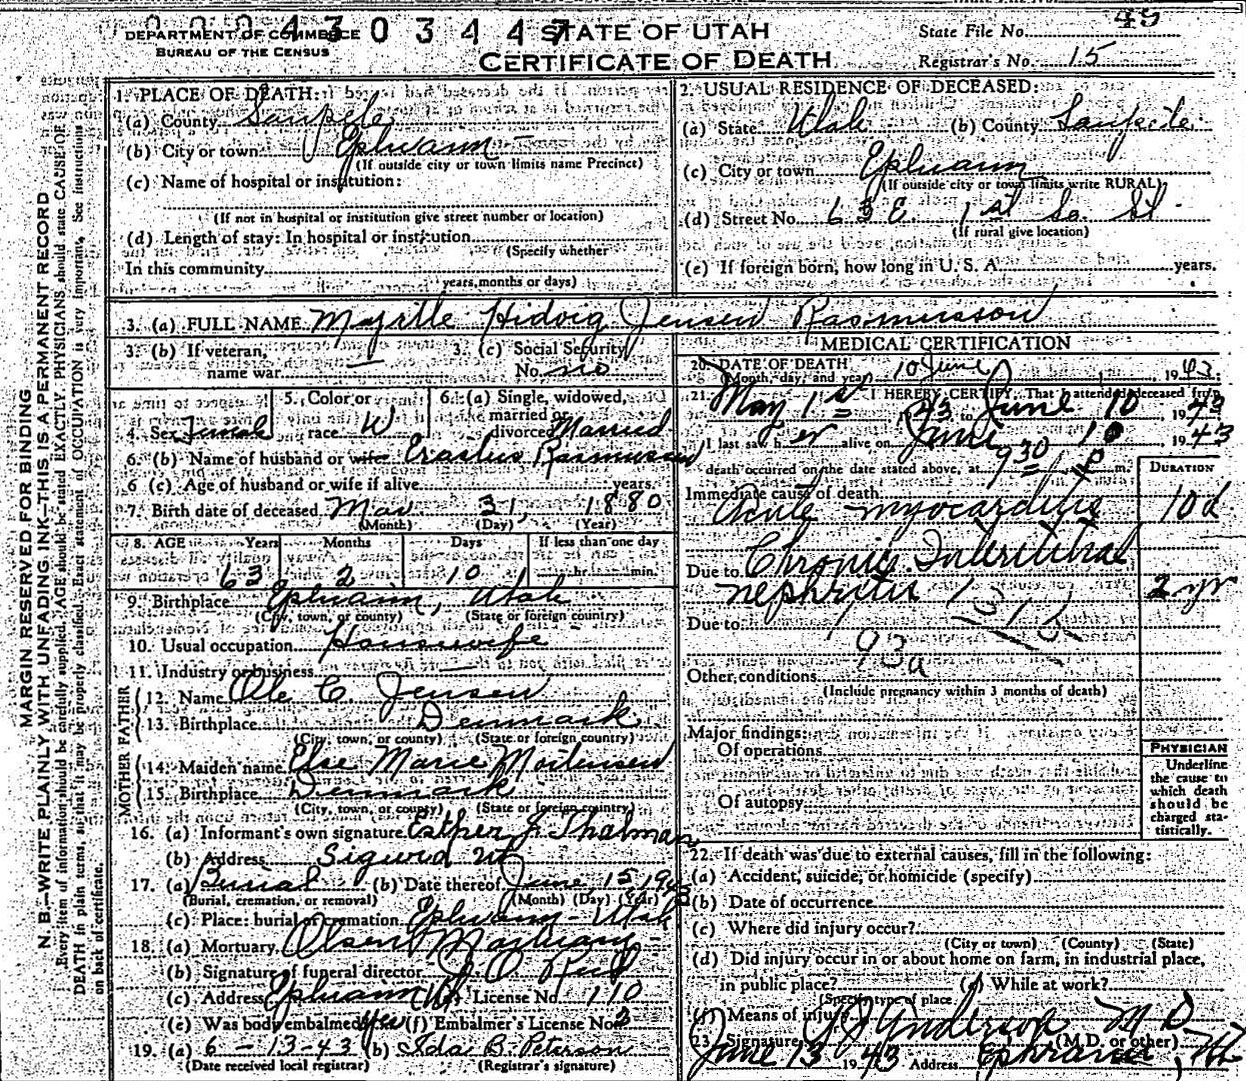 DEPARTMENT OF COMMERCE
BUREAU OF THE CENSUS
STATE OF UTAH
CERTIFICATE OF DEATH
State File No. 48
Registrar's No. 15
MARGIN RESERVED FOR BINDING
N. B.—WRITE PLAINLY WITH UNFADING INK—THIS IS A PERMANENT RECORD
Every item of information should be carefully supplied. AGE should be stated EXACTLY. PHYSICIANS should state CAUSE OF
DEATH in plain terms, so that it may be properly classified. Exact statement of OCCUPATION is very important. See instructions
on back of certificate.
1. PLACE OF DEATH:
(a) County Sanpete
(b) City or town Ephraim
(If outside city or town limits name Precinct)
(c) Name of hospital or institution:
(If not in hospital or institution give street number or location)
(d) Length of stay: In hospital or institution
(Specify whether
In this community
years, months or days)
2. USUAL RESIDENCE OF DECEASED:
(a) State Utah (b) County Sanpete
(c) City or town Ephraim
(If outside city or town limits write RURAL)
(d) Street No. 63 E. 1st So. St
(If rural give location)
(e) If foreign born, how long in U. S. A. years.
3. (a) FULL NAME Myrtle Hidvig Jensen Rasmusson
3. (b) If veteran,
name war —
3. (c) Social Security
No. no
4. Sex Female
5. Color or
race W
6. (a) Single, widowed,
married or
divorced Married
6. (b) Name of husband or wife Erastus Rasmussen
6 (c) Age of husband or wife if alive years.
7. Birth date of deceased Mar 31, 1880
(Month) (Day) (Year)
8. AGE Years Months Days If less than one day
63 2 10 hr. min.
9. Birthplace Ephraim, Utah
(City, town, or county) (State or foreign country)
10. Usual occupation Housewife
11. Industry or business —
FATHER
12. Name Ole C. Jensen
13. Birthplace Denmark
(City, town, or county) (State or foreign country)
MOTHER
14. Maiden name Else Marie Mortensen
15. Birthplace Denmark
(City, town, or county) (State or foreign country)
16. (a) Informant's own signature Esther J. Thalman
(b) Address Sigurd Ut
17. (a) Burial (b) Date thereof June 15 1943
(Burial, cremation, or removal) (Month) (Day) (Year)
(c) Place: burial or cremation Ephraim - Utah
18. (a) Mortuary Olsen Mortuary
(b) Signature of funeral director
(c) Address Ephraim Ut License No. 110
(e) Was body embalmed yes (f) Embalmer's License No.
19. (a) 6-13-43 (b) Ida B. Peterson
(Date received local registrar) (Registrar's signature)
MEDICAL CERTIFICATION
20. DATE OF DEATH
(Month, day, and year) 10 June 1943
21. I HEREBY CERTIFY, That I attended deceased from
May 1st 43 to June 10 1943
I last saw her alive on June 10, 1943
death occurred on the date stated above, at 930 P m.
DURATION
Immediate cause of death
Acute myocarditis 10d
Due to Chronic Interstitial
nephritis 2 yr
Due to
93a
Other conditions
(Include pregnancy within 3 months of death)
Major findings:
Of operations
Of autopsy
PHYSICIAN
Underline
the cause to
which death
should be
charged sta-
tistically.
22. If death was due to external causes, fill in the following:
(a) Accident, suicide, or homicide (specify)
(b) Date of occurrence
(c) Where did injury occur?
(City or town) (County) (State)
(d) Did injury occur in or about home on farm, in industrial place,
in public place? (e) While at work?
(Specify type of place
(f) Means of injury
23. Signature Anderson M D
(M.D. or other)
June 13 1943 Address Ephraim, Ut